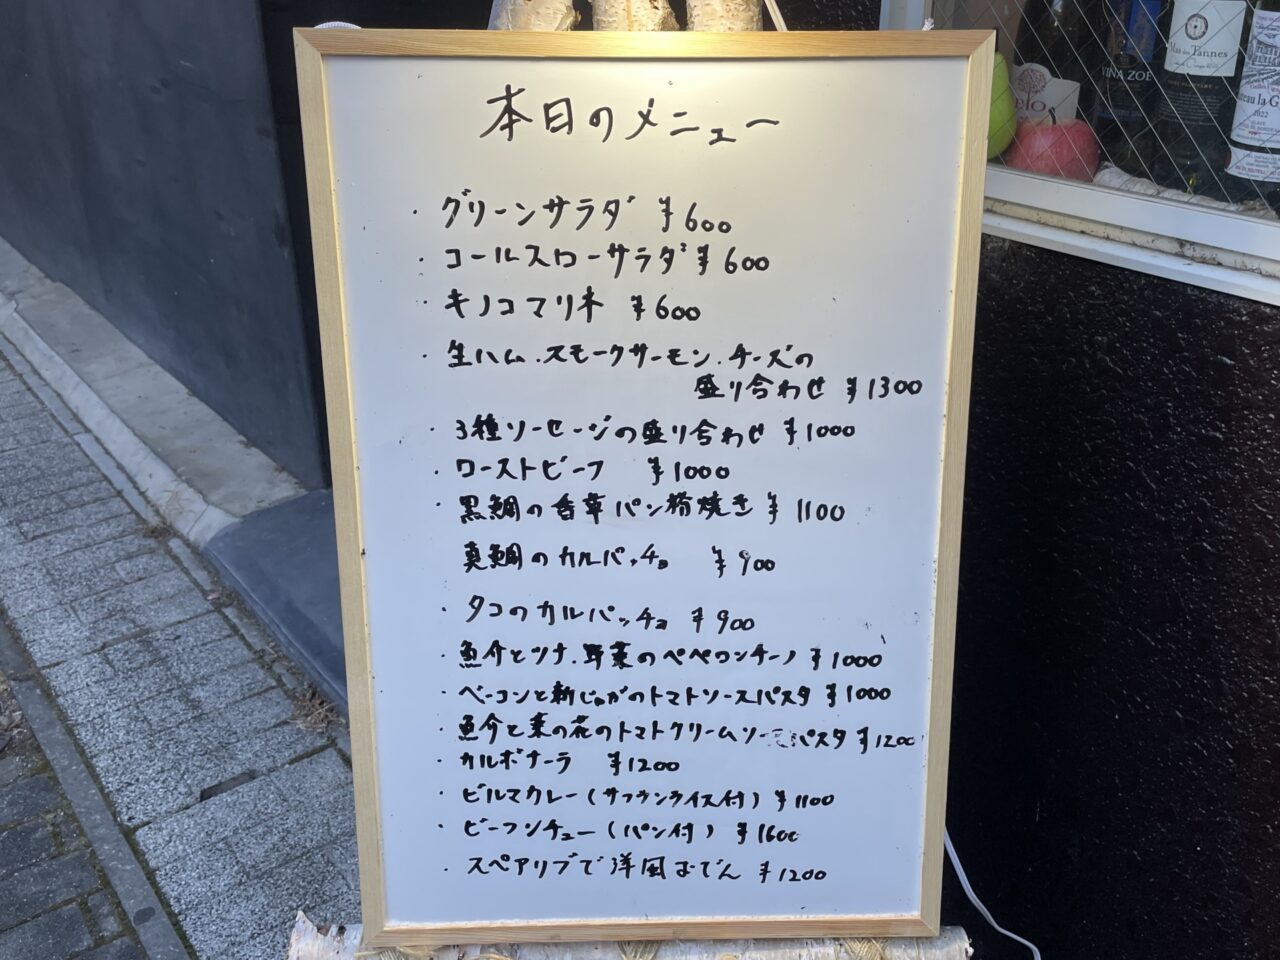 本日のメニュー
・グリーンサラダ ¥600
・コールスローサラダ ¥600
・キノコマリネ ¥600
・生ハム.スモークサーモン.チーズの
盛り合わせ ¥1300
・3種ソーセージの盛り合わせ ¥1000
・ローストビーフ ¥1000
・黒鯛の香草パン粉焼き ¥1100
真鯛のカルパッチョ ¥900
・タコのカルパッチョ ¥900
・魚介とツナ.野菜のペペロンチーノ ¥1000
・ベーコンと新じゃがのトマトソースパスタ ¥1000
・魚介と菜の花のトマトクリームソースパスタ ¥1200
・カルボナーラ ¥1200
・ビルマカレー(サフランライス付) ¥1100
・ビーフシチュー(パン付) ¥1600
・スペアリブで洋風おでん ¥1200
BIO
VINA ZOE
Mas des Tannes
2022